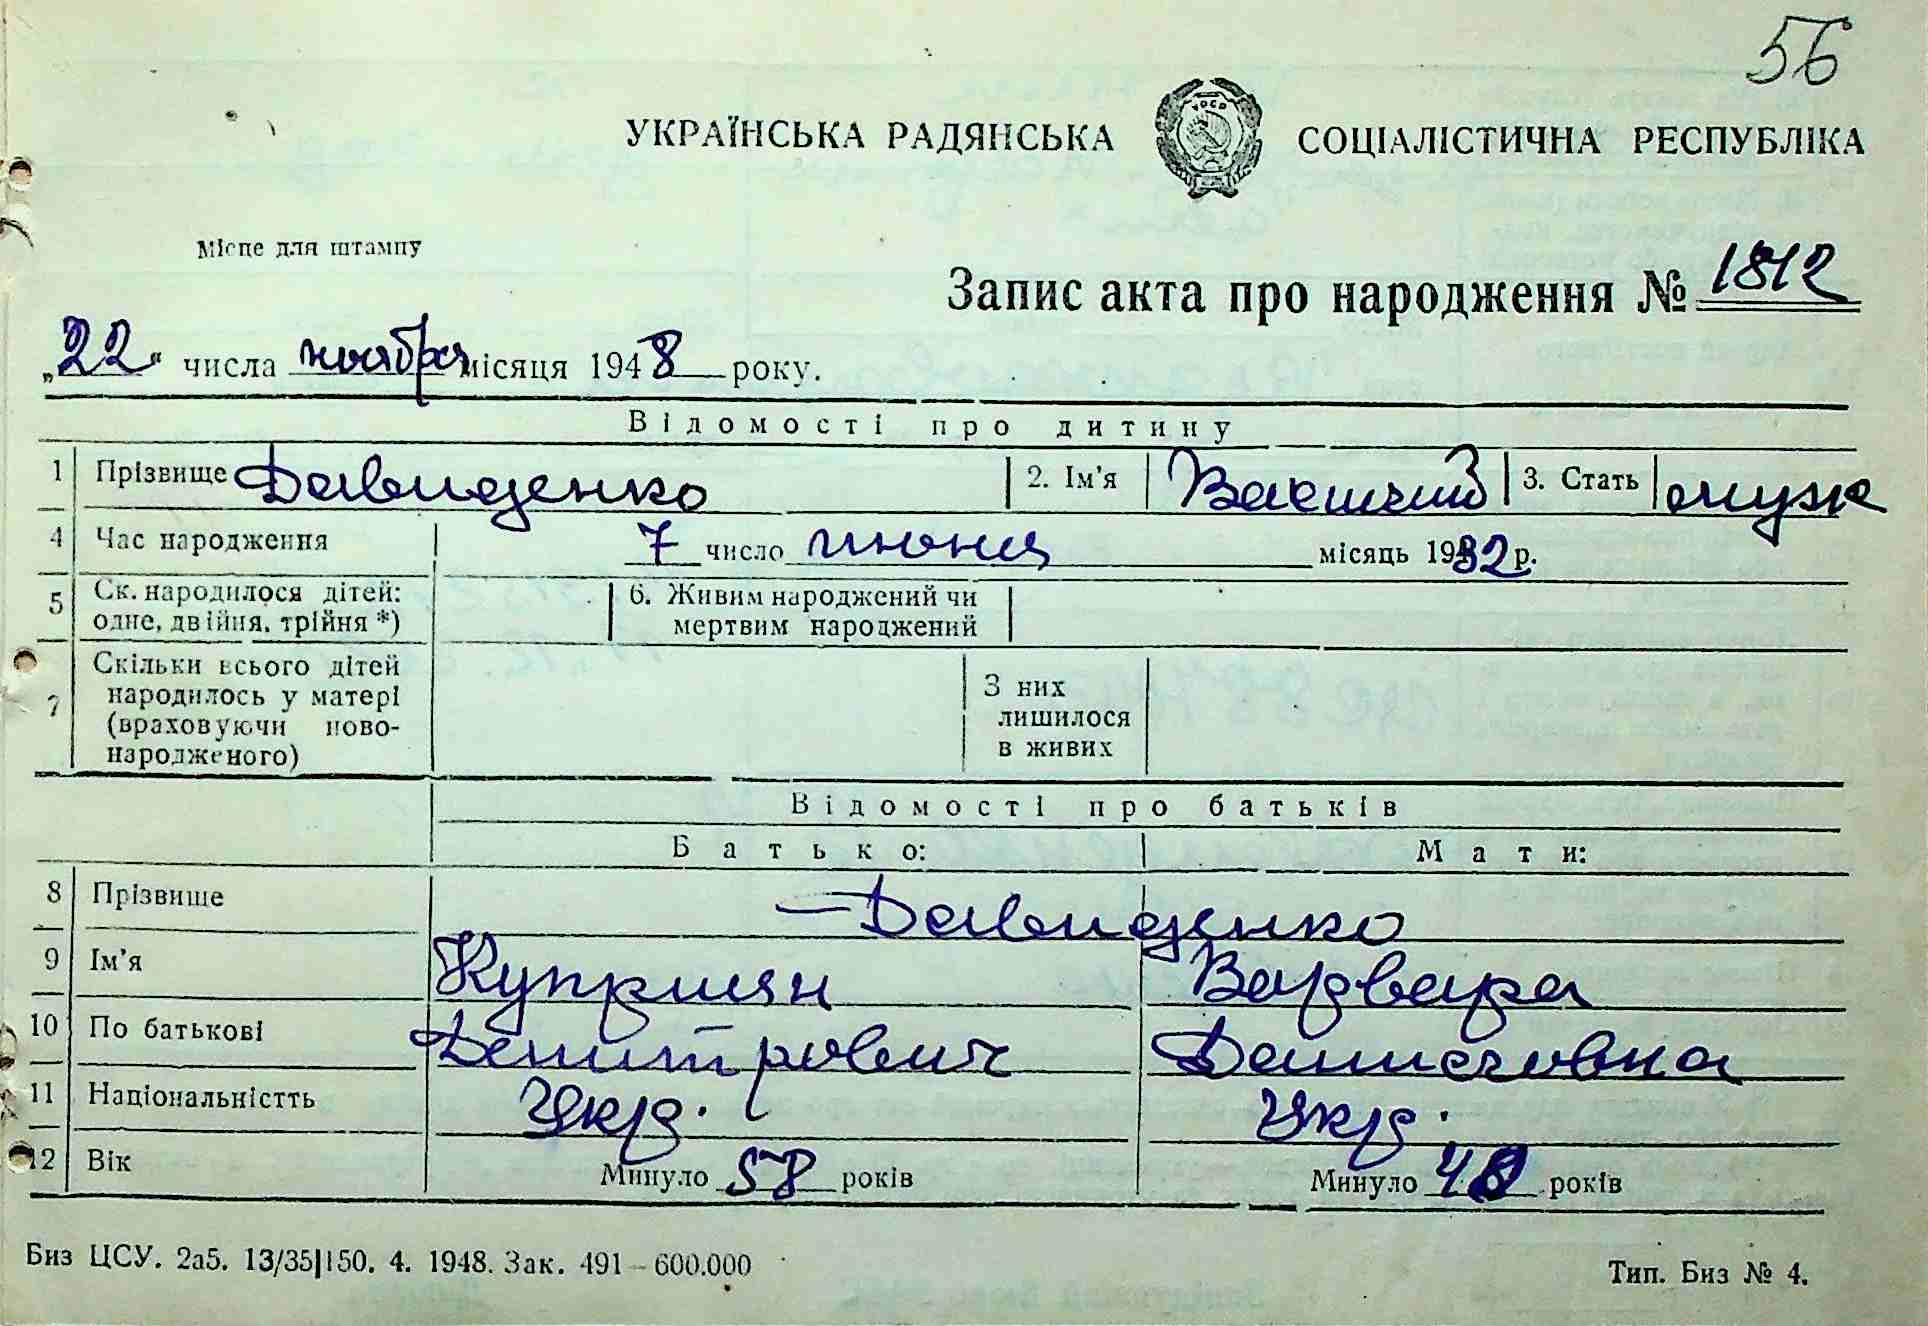 56
УКРАЇНСЬКА РАДЯНСЬКА СОЦІАЛІСТИЧНА РЕСПУБЛІКА
Місце для штампу
Запис акта про народження № 1812
„22“ числа ноября місяця 1948 року.
Відомості про дитину
1 Прізвище Давиденко 2. Ім'я Василий 3. Стать муж
4 Час народження 7 число июня місяць 1932 р.
5 Ск. народилося дітей: одне, двійня, трійня *) 6. Живим народжений чи мертвим народжений
7 Скільки всього дітей народилось у матері (враховуючи ново-народженого) З них лишилося в живих
Відомості про батьків
Батько: Мати:
8 Прізвище Давиденко
9 Ім'я Куприян Варвара
10 По батькові Дмитрович Денисовна
11 Національністть Укр. Укр.
12 Вік Минуло 58 років Минуло 48 років
Биз ЦСУ. 2а5. 13/35|150. 4. 1948. Зак. 491 – 600.000 Тип. Биз № 4.